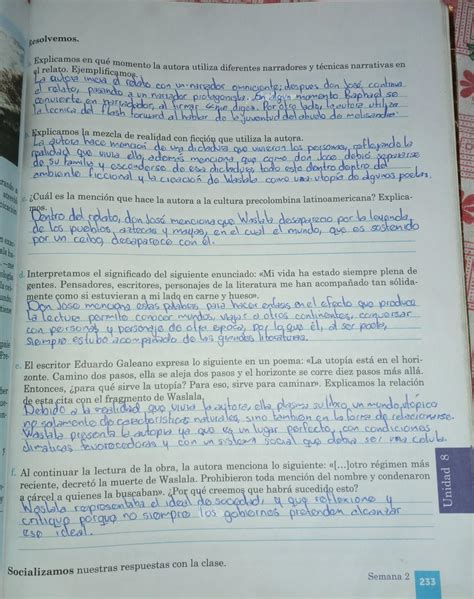 Resolvemos.
Explicamos en qué momento la autora utiliza diferentes narradores y técnicas narrativas en
el relato. Ejemplificamos.
La autora inicia el relato con un narrador omnisciente; despues don José continua
el relato, pasando a un narrador protagonista. En algun momento Raphael se
convierte en narrador, al firmar segun digas. Por otro lado, la autora utiliza
la tecnica del flash forward al hablar de la juventud del abuelo de melisandra.
Explicamos la mezcla de realidad con ficción que utiliza la autora.
La autora hace mencion de una dictadura que vivieron las personas, reflejando la
realidad que vivia ella, ademas menciona, que como don Jose debió separarse
de su familia y esconderse de esa dictadura todo esto dentro del
ambiente ficcional y la creación de Waslala como una utopia de algunos poetas.
c. ¿Cuál es la mención que hace la autora a la cultura precolombina latinoamericana? Explica-
mos.
Dentro del relato, don José menciona que Waslala desaparecio por la leyenda
de los pueblos, aztecas y mayas, en el cual el mundo, que es sostenido
por un ceibo, desaparece con él.
d. Interpretamos el significado del siguiente enunciado: «Mi vida ha estado siempre plena de
gentes. Pensadores, escritores, personajes de la literatura me han acompañado tan sólida-
mente como si estuvieran a mi lado en carne y hueso».
Don Jose menciona estas palabras para hacer enfasis en el efecto que produce
la lectura permite conocer mundos, viajar a otros continentes, conversar
con personas y personaje de otra epoca, por lo que él, al ser poeta,
siempre estubo acompañado de los grandes literaturas.
e. El escritor Eduardo Galeano expresa lo siguiente en un poema: «La utopía está en el hori-
zonte. Camino dos pasos, ella se aleja dos pasos y el horizonte se corre diez pasos más allá.
Entonces, ¿para qué sirve la utopía? Para eso, sirve para caminar». Explicamos la relación
de esta cita con el fragmento de Waslala.
Debido a la realidad que vivia la autora, ella plasma su libro, un mundo utópico
no solamente de caracteristicas naturales, sino tambien en la forma de relacionarse.
Waslala presenta la utopia ya que es un lugar perfecto, con condiciones
climaticas favorecedoras y con un sistema social que debia ser una celula.
f. Al continuar la lectura de la obra, la autora menciona lo siguiente: «[...]otro régimen más
reciente, decretó la muerte de Waslala. Prohibieron toda mención del nombre y condenaron
a cárcel a quienes la buscaban». ¿Por qué creemos que habrá sucedido esto?
Waslala representaba el ideal de sociedad, y que reflexione y
critique porque no siempre los gobiernos pretenden alcanzar
ese ideal.
Socializamos nuestras respuestas con la clase.
Unidad 8
Semana 2
233